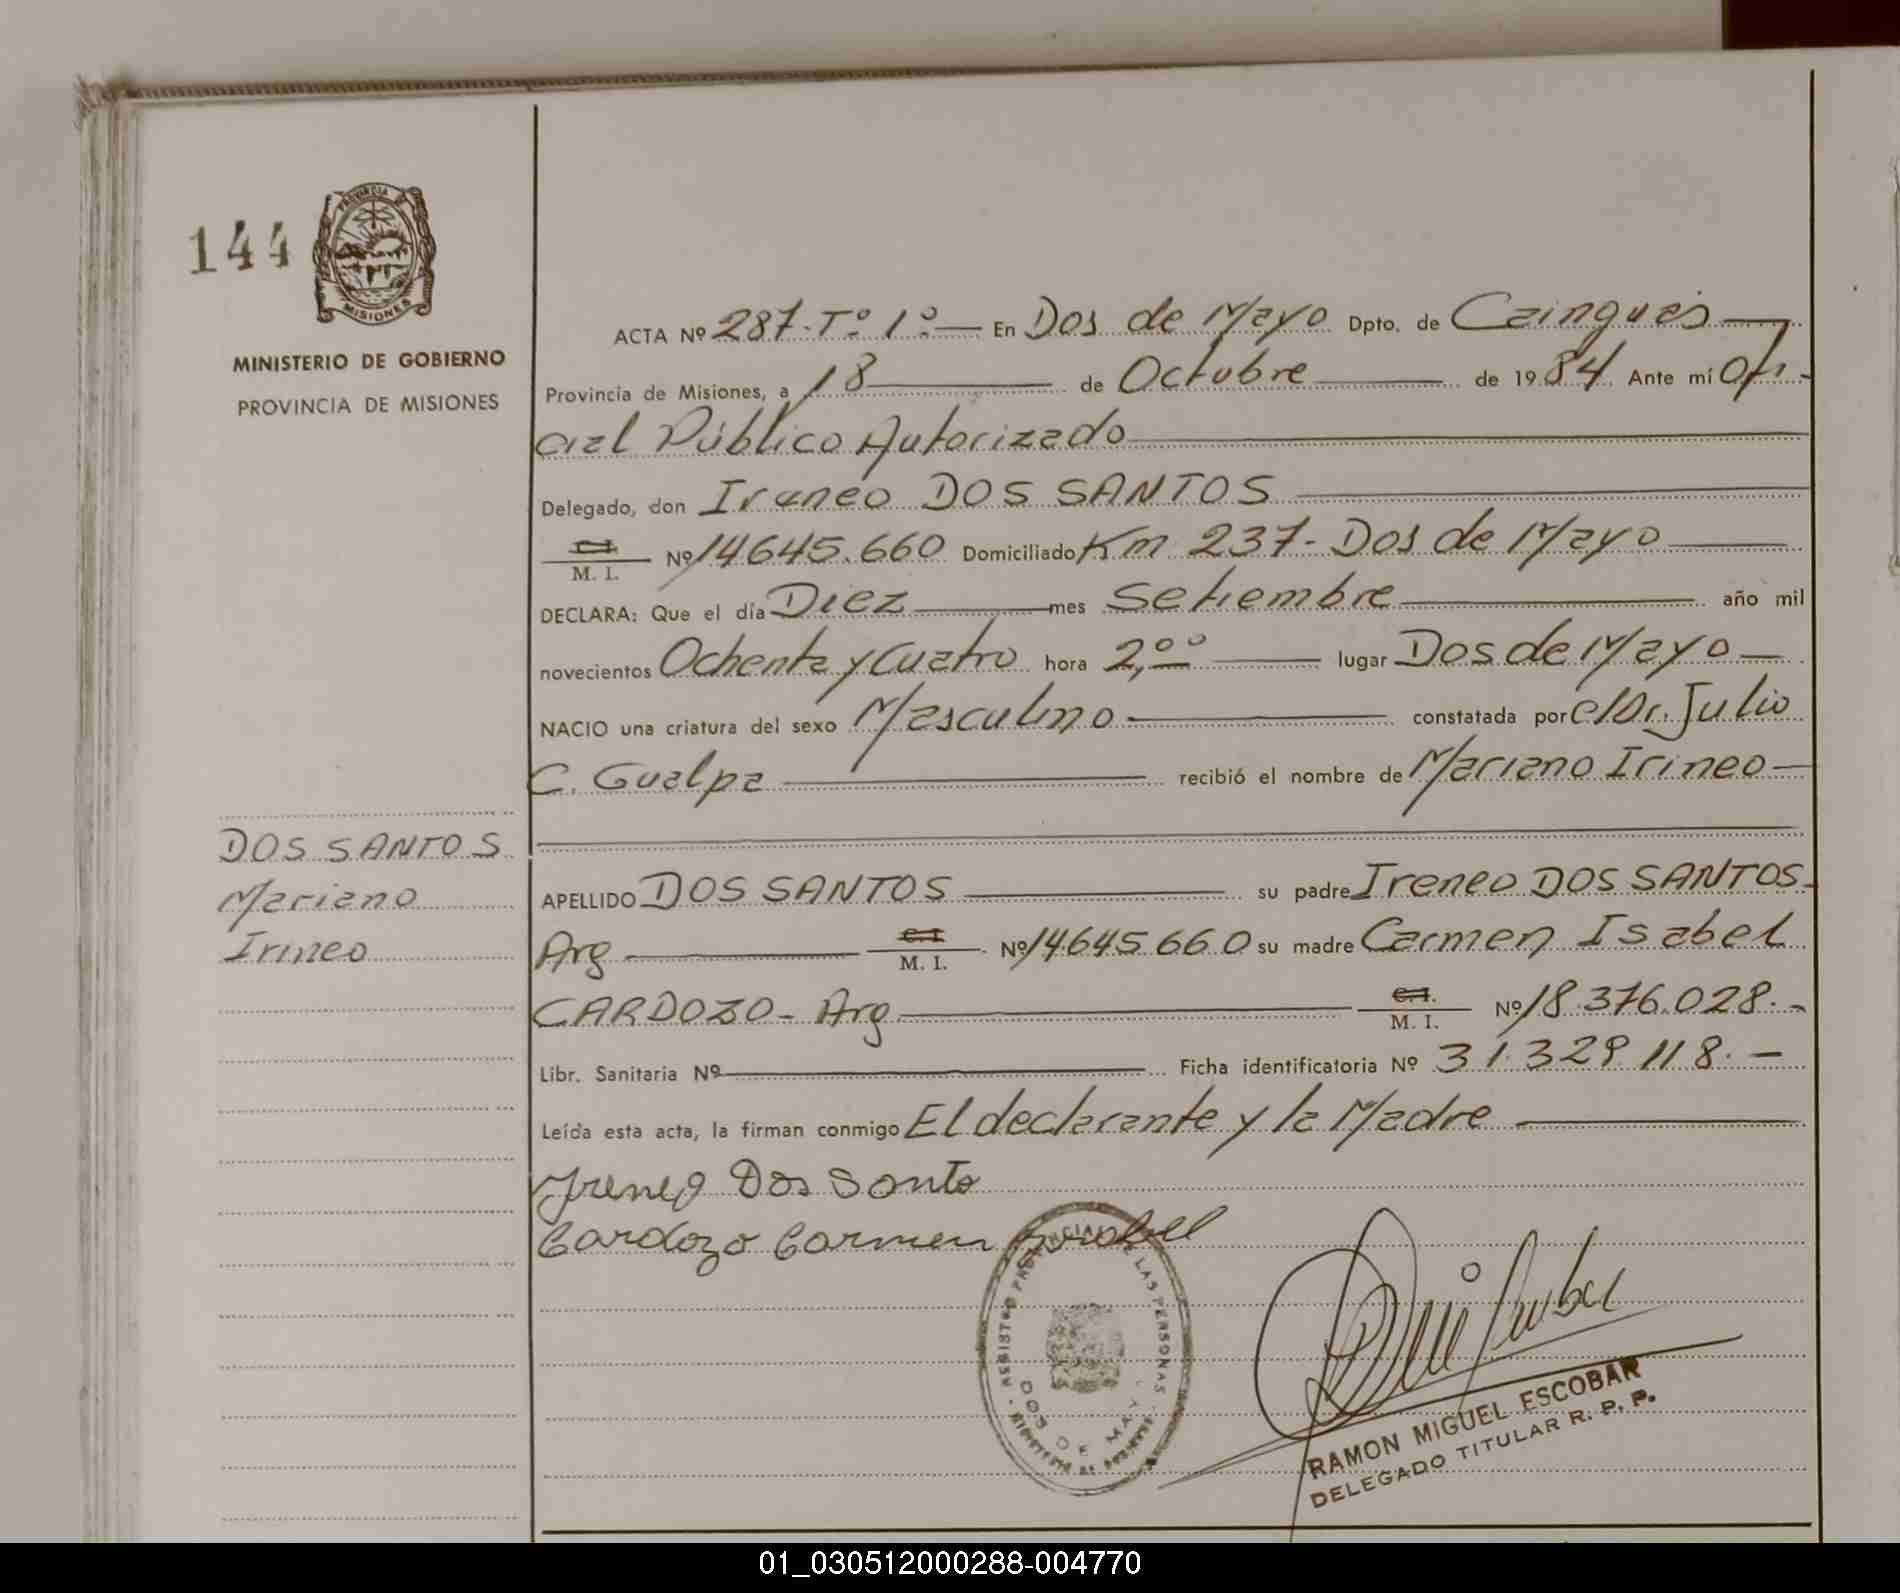 144
PROVINCIA DE
MISIONES
MINISTERIO DE GOBIERNO
PROVINCIA DE MISIONES
ACTA Nº 287-Tº 1º.— En Dos de Mayo Dpto. de Cainguás
Provincia de Misiones, a 18 de Octubre de 1984. Ante mí Ofi-
cial Público Autorizado
Delegado, don Ireneo DOS SANTOS
C.I. M. I. Nº 14645.660 Domiciliado Km 237- Dos de Mayo
DECLARA: Que el día Diez mes Setiembre año mil
novecientos Ochenta y Cuatro hora 2,ºº lugar Dos de Mayo
NACIO una criatura del sexo Masculino constatada por el Dr. Julio
C. Gualpa recibió el nombre de Mariano Irineo
DOS SANTOS
Mariano
Irineo
APELLIDO DOS SANTOS su padre Ireneo DOS SANTOS-
Arg C.I. M. I. Nº 14645.660 su madre Carmen Isabel
CARDOZO- Arg C.I. M. I. Nº 18.376.028.-
Libr. Sanitaria Nº Ficha identificatoria Nº 31.329.118.-
Leída esta acta, la firman conmigo El declarante y la Madre
Ireneo Dos Santo
Cardozo Carmen Isabell
REGISTRO PROVINCIAL DE LAS PERSONAS
DOS DE MAYO
RAMON MIGUEL ESCOBAR
DELEGADO TITULAR R. P. P.
01_030512000288-004770